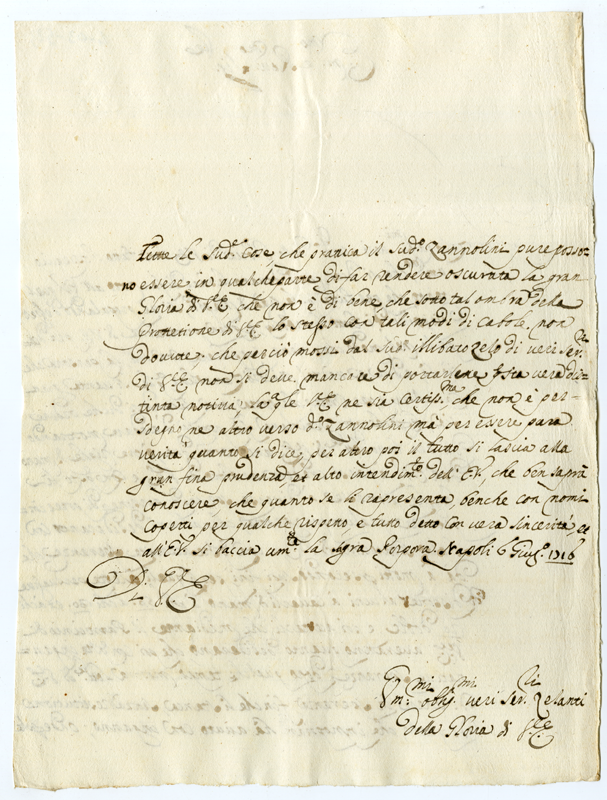 Tutte le sud.e Cose, che pratica il sud.o Zannolini pure posso-
no essere in qualche parte di far rendere oscurata la gran
Gloria di V.E. che non è di bene che sotto tal ombra della
Protettione di V.E. lo stesso con tali modi di cabole non
dovute, che perciò mossi dal sud.o illibato zelo di veri ser.ri
di V.E. non si deve mancare di portarlene q.sta vera dis-
tinta notitia, la q.le V.E. ne sia Certiss.ma che non è per
sdegno, ne altro verso d.o Zannolini mà per essere pura
verità quanto si dice, per altro poi il tutto si lascia alla
gran fina prudenza, et alto intendim.to dell' E.V., che ben saprà
conoscere che quanto se le rapresenta benche con nomi
coperti per qualche rispetto è tutto detto con vera sincerità, et
all'E.V. si baccia um.te la sagra Porpora. Napoli 6 Giug.o 1716
Di V.E.
Um.mi obblig.mi veri Ser.ri zelanti
della Gloria di V.E.